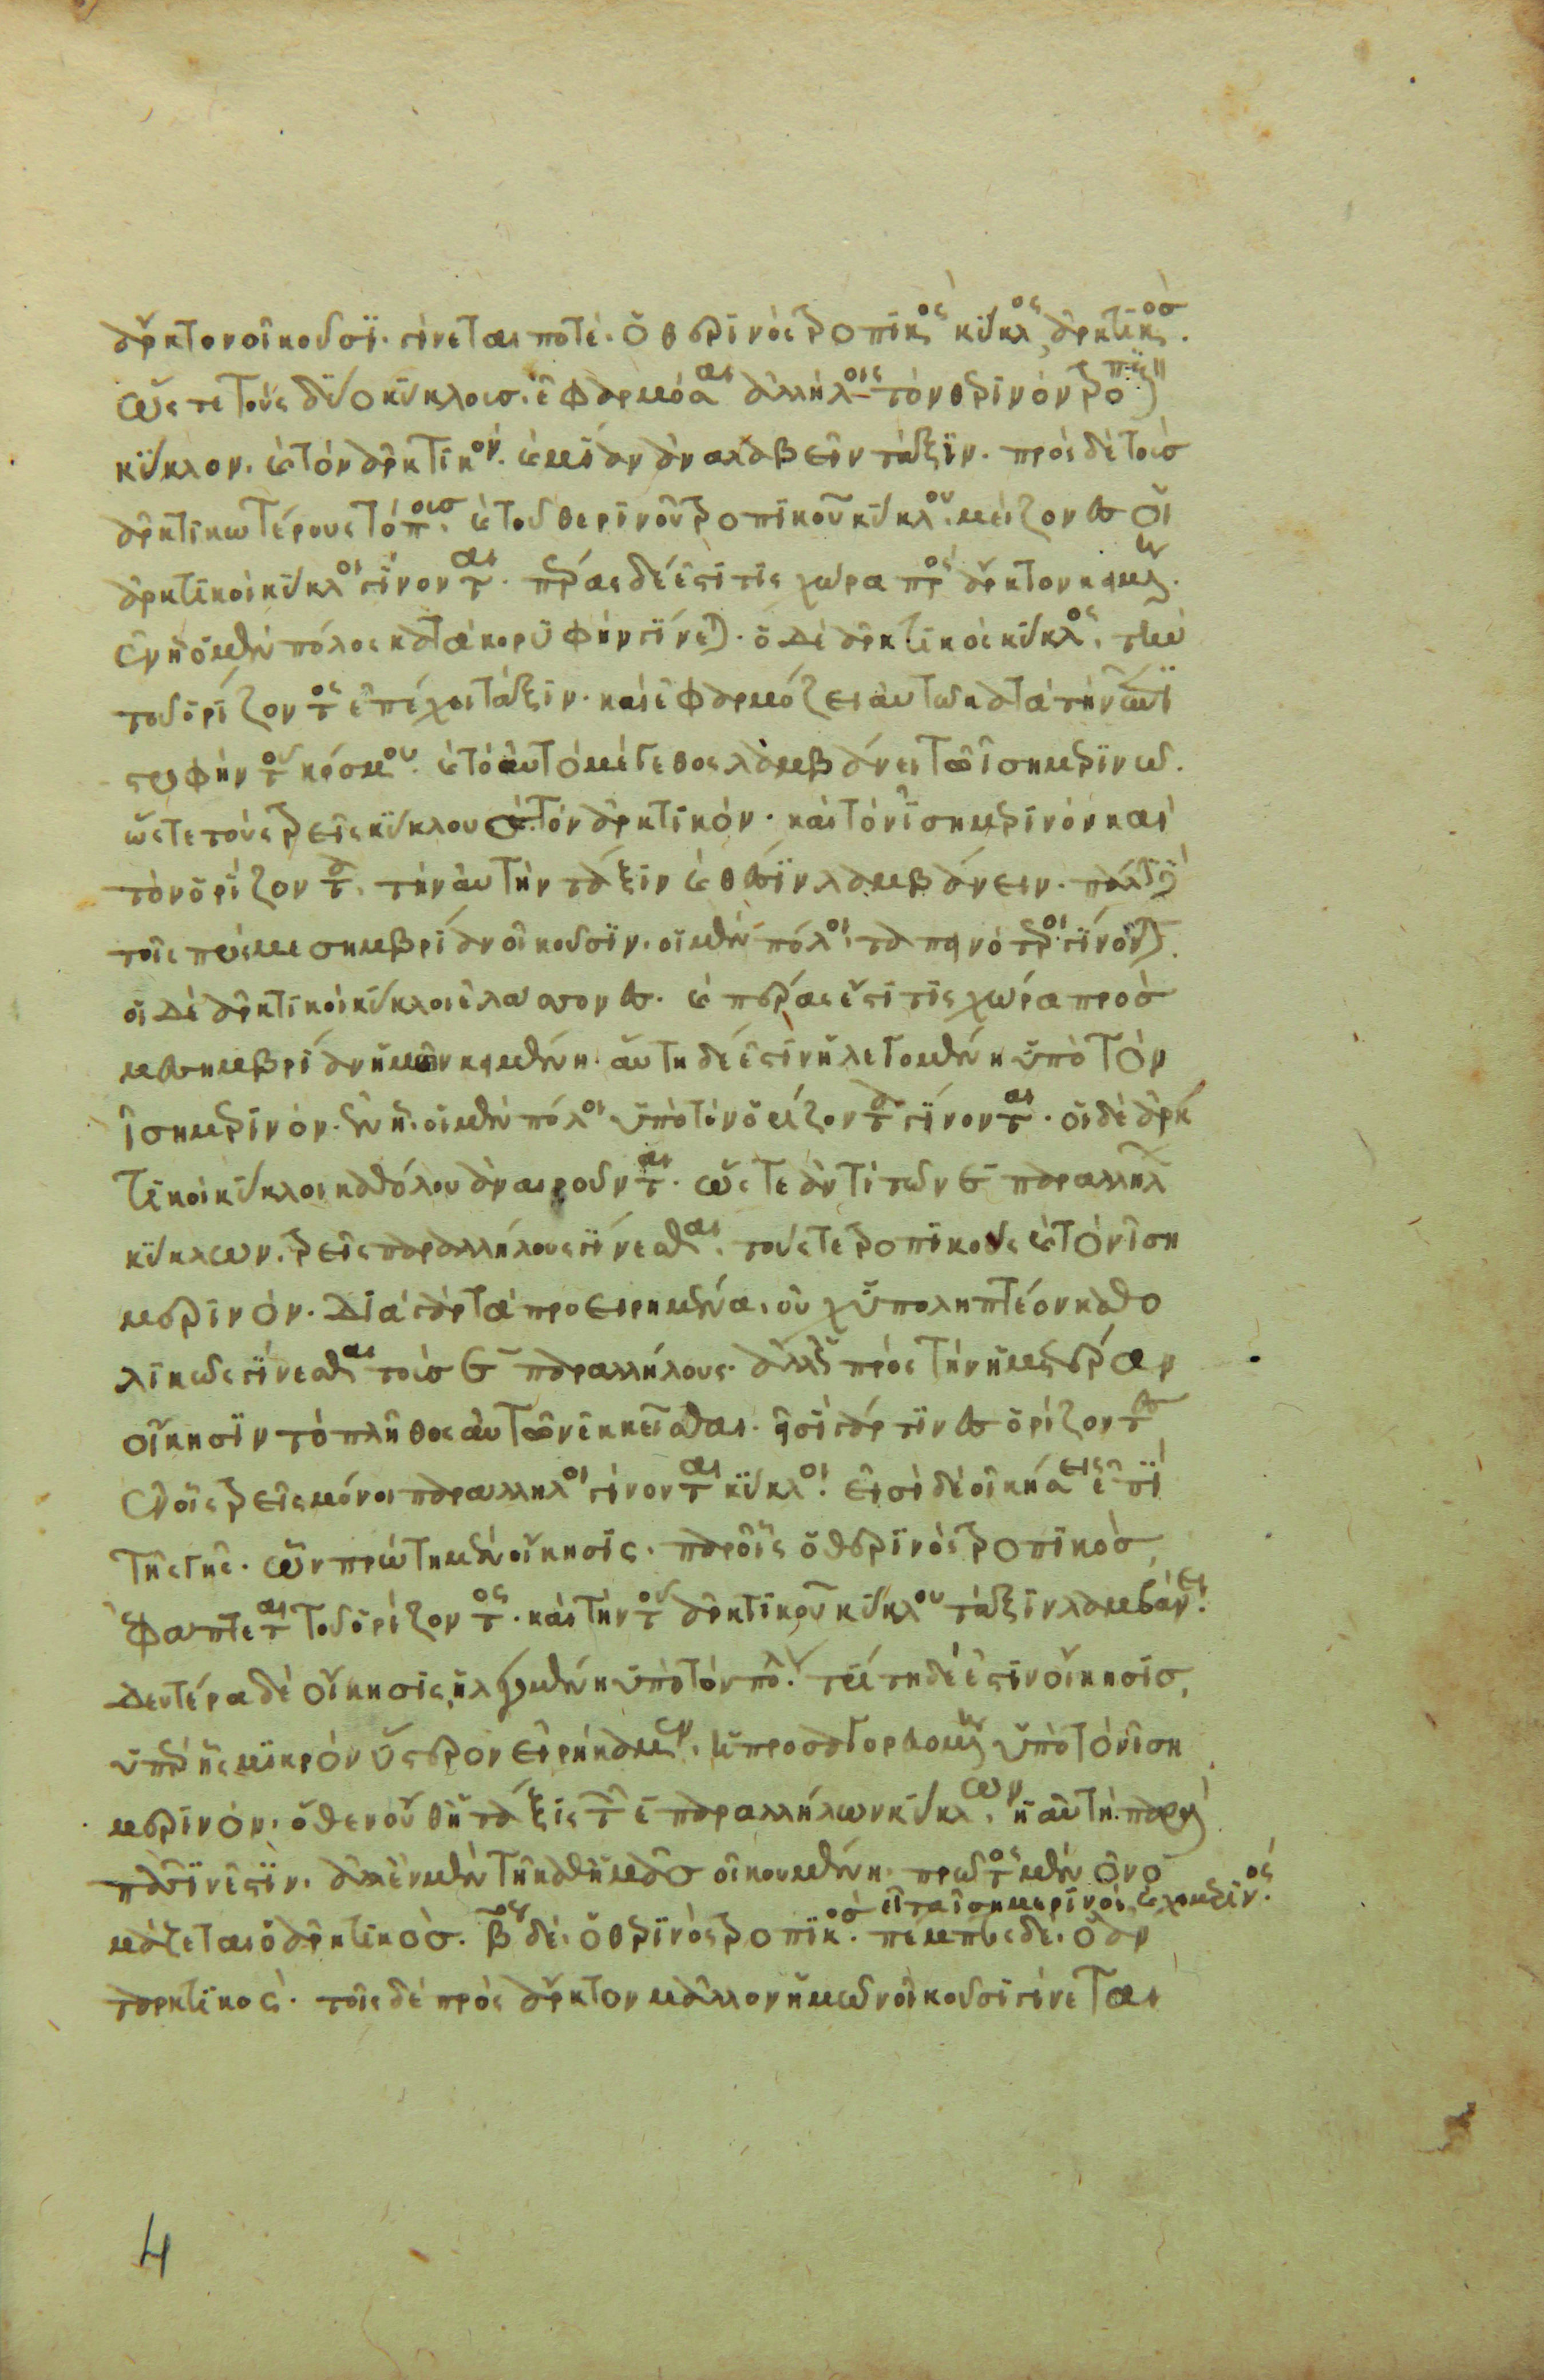 ἄρκτον οἰκοῦσϊ. γίνεται ποτὲ. ὁ θερϊνὸς τροπϊκὸς κύκλος, ἀρκτικὸσ.
ὥς τε τοὺς δύο κύκλοισ. ἐφαρμόσαι ἀλλήλοις τὸν θερϊνὸν τροπϊκὸν
κύκλον. καὶ τὸν ἀρκτϊκὸν. καὶ μίαν ἀναλαβεῖν τάξϊν. πρὸς δὲ τοῖσ
ἀρκτϊκωτέρους τόποισ. καὶ τοῦ θερϊνοῦ τροπϊκοῦ κύκλου. μείζονες οἱ
ἀρκτϊκοὶ κύκλοι γίνονται. πέρας δέ ἐστί τϊς χώρα πρὸς ἄρκτον κειμένη.
ἐν ᾗ ὁ μὲν πόλος κατὰ κορυφὴν γίνεται. ὁ δὲ ἀρκτϊκὸς κύκλος. τὴν
τοῦ ὁρίζοντος ἐπέχει τάξϊν. καὶ ἐφαρμόζει αὐτῶ κατὰ τὴν
στροφὴν τοῦ κόσμου. καὶ τὸ αὐτὸ μέγεθος λαμβάνει τῶ ἰσημερϊνῶ.
ὥστε τοὺς τρεῖς κύκλουσ. τὸν ἀρκτϊκόν. καὶ τὸν ἰσημερϊνὸν καὶ
τὸν ὁρίζοντα. τὴν αὐτὴν τάξϊν καὶ θέσϊν λαμβάνειν. πάλϊν
τοῖς πρὸς μεσημβρίαν οἰκοῦσϊν. οἱ μὲν πόλοι. ταπεινότεροι γίνονται.
οἱ δὲ ἀρκτϊκοὶ κύκλοι ἐλάσσονες. καὶ πέρας ἔστί τϊς χώρα προσ
μεσημβρίαν ἡμῶν κειμένη. αὕτη δέ ἐστϊν ἡ λεγομένη ὑπὸ τὸν
ἰσημερϊνόν. ἐν ᾗ. οἱ μὲν πόλοι ὑπὸ τὸν ὁρίζοντα γίνονται. οἱ δὲ ἀρκ
τϊκοὶ κύκλοι καθόλου ἀναιροῦνται. ὥστε ἀντὶ τῶν ε παραλλήλων
κύκλων. τρεῖς παραλλήλους γίνεσθαι. τούς τε τροπϊκοὺς καὶ τὸν ἰση
μερϊνόν. διὰ γὰρ τὰ προειρημένα. οὐχ ὑποληπτέον καθο
λϊκῶς γίνεσθαι τοὺσ ε παραλλήλους. ἀλλὰ πρὸς τὴν ἡμετέραν
οἴκησϊν τὸ πλῆθος αὐτῶν ἐκκεῖσθαι. εἰσὶ γάρ τϊνες ὁρίζοντες
ἐν οἷς τρεῖς μόνοι παράλληλοι γίνονται κύκλοι. εἰσὶ δὲ οἰκήσεις ἐπὶ
τῆς γῆς. ὧν πρώτη μὲν οἴκησϊς. παρ οἷς ὁ θερϊνὸς τροπϊκὸσ,
ἐφάπτεται τοῦ ὁρίζοντος. καὶ τὴν τοῦ ἀρκτϊκοῦ κύκλου τάξϊν λαμβάνει.
δευτέρα δὲ οἴκησϊς, ἡ λεγομένη ὑπὸ τὸν πόλον. τρίτη δέ ἐστϊν οἴκησϊσ,
ὑπὲρ ἧς μϊκρὸν ὕστερον εἰρήκαμεν. ἡ προσαγορευομένη ὑπὸ τὸν ἰση
μερϊνόν. ὅθεν οὐδ ἡ τάξϊς τῶν ε παραλλήλων κύκλων. ἡ αὐτὴ παρὰ
πᾶσϊν ἐστϊν. ἀλλ ἐν μὲν τῇ καθ ἡμᾶσ οἰκουμένη. πρῶτος μὲν ὀνο
μάζεται ὁ ἀρκτϊκὸσ. βος δὲ. ὁ θερϊνὸς τροπϊκὸσ. εἶτα ἰσημερϊνὸς. καὶ χειμερϊνός. πέμπτος δὲ. ὁ ἀν
ταρκτϊκος. τοῖς δὲ πρὸς ἄρκτον μᾶλλον ἡμῶν οἰκοῦσϊ γίνεται
4